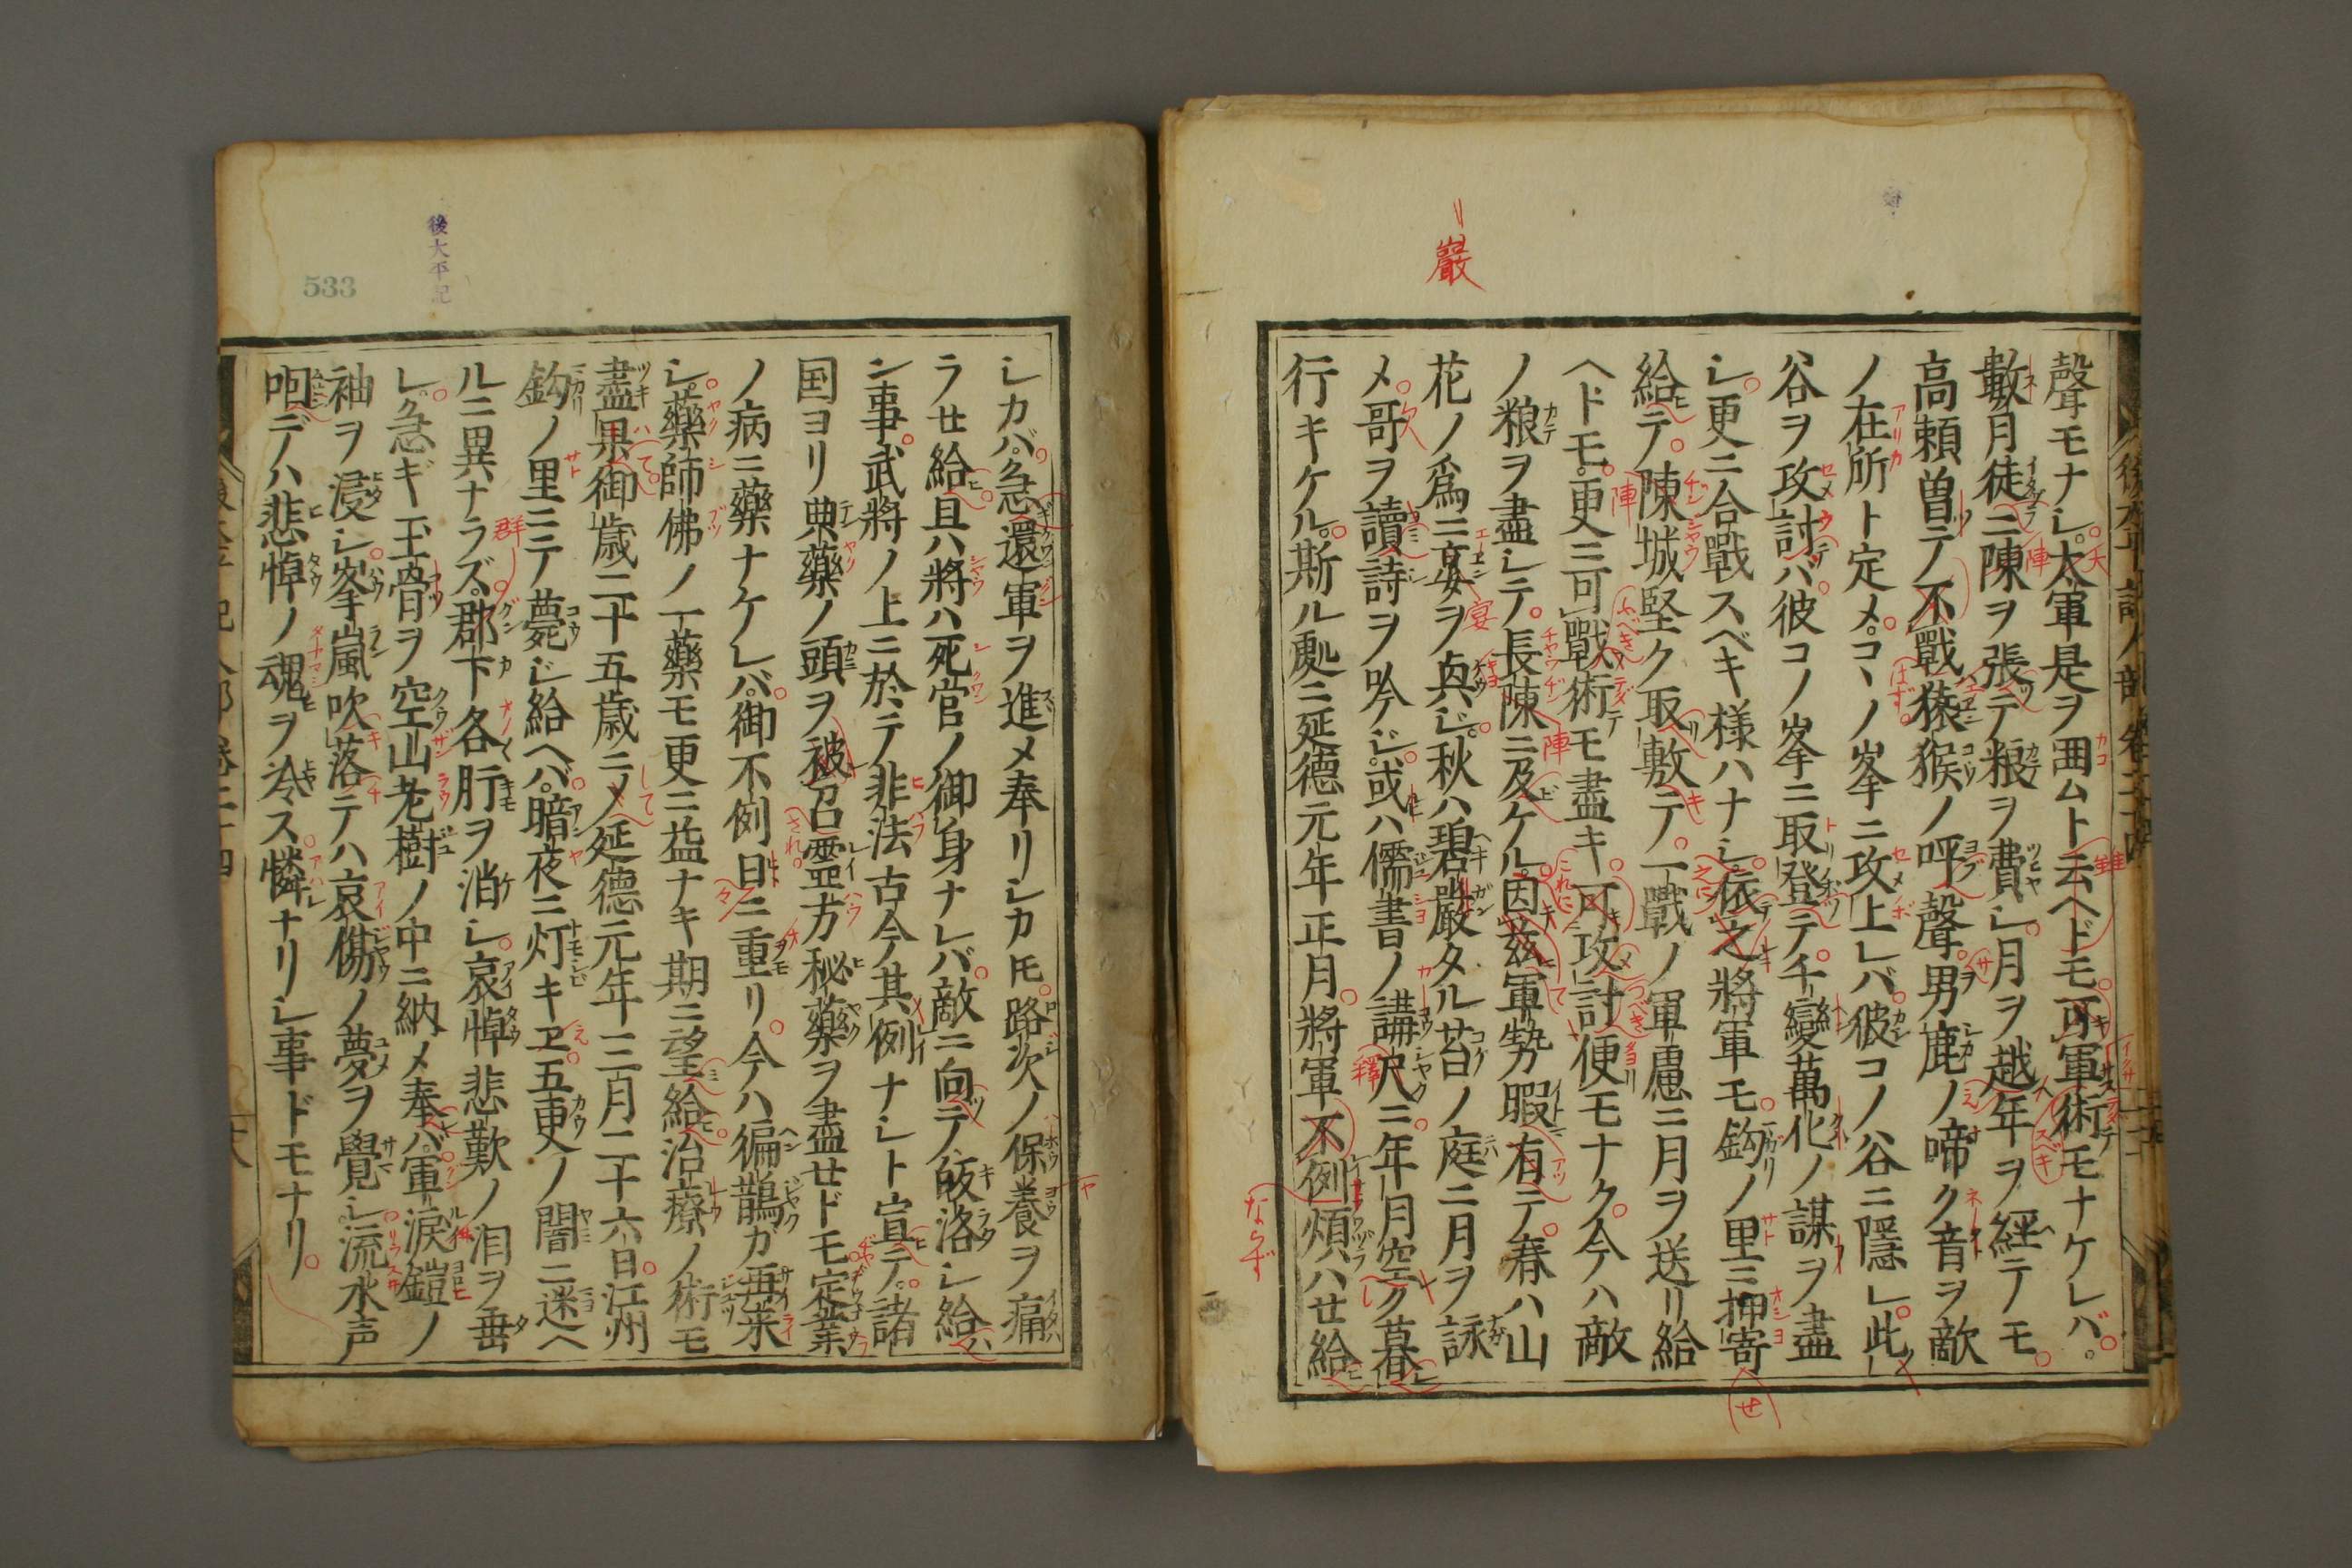 聲モナシ。大軍是ヲ囲ムト云ヘドモ可軍術モナケレバ。
數月徒ニ陳ヲ張テ粮ヲ費シ月ヲ越年ヲ經テモ
高頼曽テ不戰猿猴ノ呼聲男鹿ノ啼ク音ヲ敵
ノ在所ト定メコヽノ峯ニ攻上レバ彼コノ谷ニ隱レ此
谷ヲ攻討バ彼コノ峯ニ取登テ千變萬化ノ謀ヲ盡
シ更ニ合戰スベキ様ハナシ依之將軍モ鈎ノ里ニ押寄
給テ陳城堅ク取敷テ一戰ノ軍慮ニ月ヲ送リ給
ヘドモ更ニ可戰術モ盡キ可攻討便モナク今ハ敵
ノ粮ヲ盡シテ長陳ニ及ケル因玆軍勢暇有テ春ハ山
花ノ爲ニ宴ヲ眞ジ秋ハ碧嚴タル苔ノ庭ニ月ヲ詠
メ哥ヲ讀詩ヲ吟ジ或ハ儒書ノ講尺ニ年月空ク暮
行キケル斯ル処ニ延德元年正月將軍不例煩ハせ給
巖
ならず
後大平記
533
シカバ急還軍ヲ進メ奉リシカ𪜈路次ノ保養ヲ痛
ラせ給且ハ將ハ死官ノ御身ナレバ敵ニ向テ皈洛シ給
シ事武將ノ上ニ於テ非法古今其例ナシト宣テ諸
国ヨリ典藥ノ頭ヲ被召霊方秘藥ヲ盡せドモ定業
ノ病ニ藥ナケレバ御不例日ニ重リ今ハ徧鵲ガ再来
シ藥師佛ノ一藥モ更ニ益ナキ期ニ望給治療ノ術モ
盡果御歳二十五歳ニメ延德元年三月二十六日江州
鈎ノ里ニテ薨ジ給ヘバ暗夜ニ灯キヱ五更ノ闇ニ迷ヘ
ルニ異ナラズ郡下各肝ヲ消シ哀悼悲歎ノ泪ヲ垂
レ急ギ玉骨ヲ空山老樹ノ中ニ納メ奉バ軍涙鎧ノ
袖ヲ浸シ峯嵐吹落テハ哀傷ノ夢ヲ覺シ流水声
咆デハ悲悼ノ魂ヲ冷ス憐ナリシ事ドモナリ